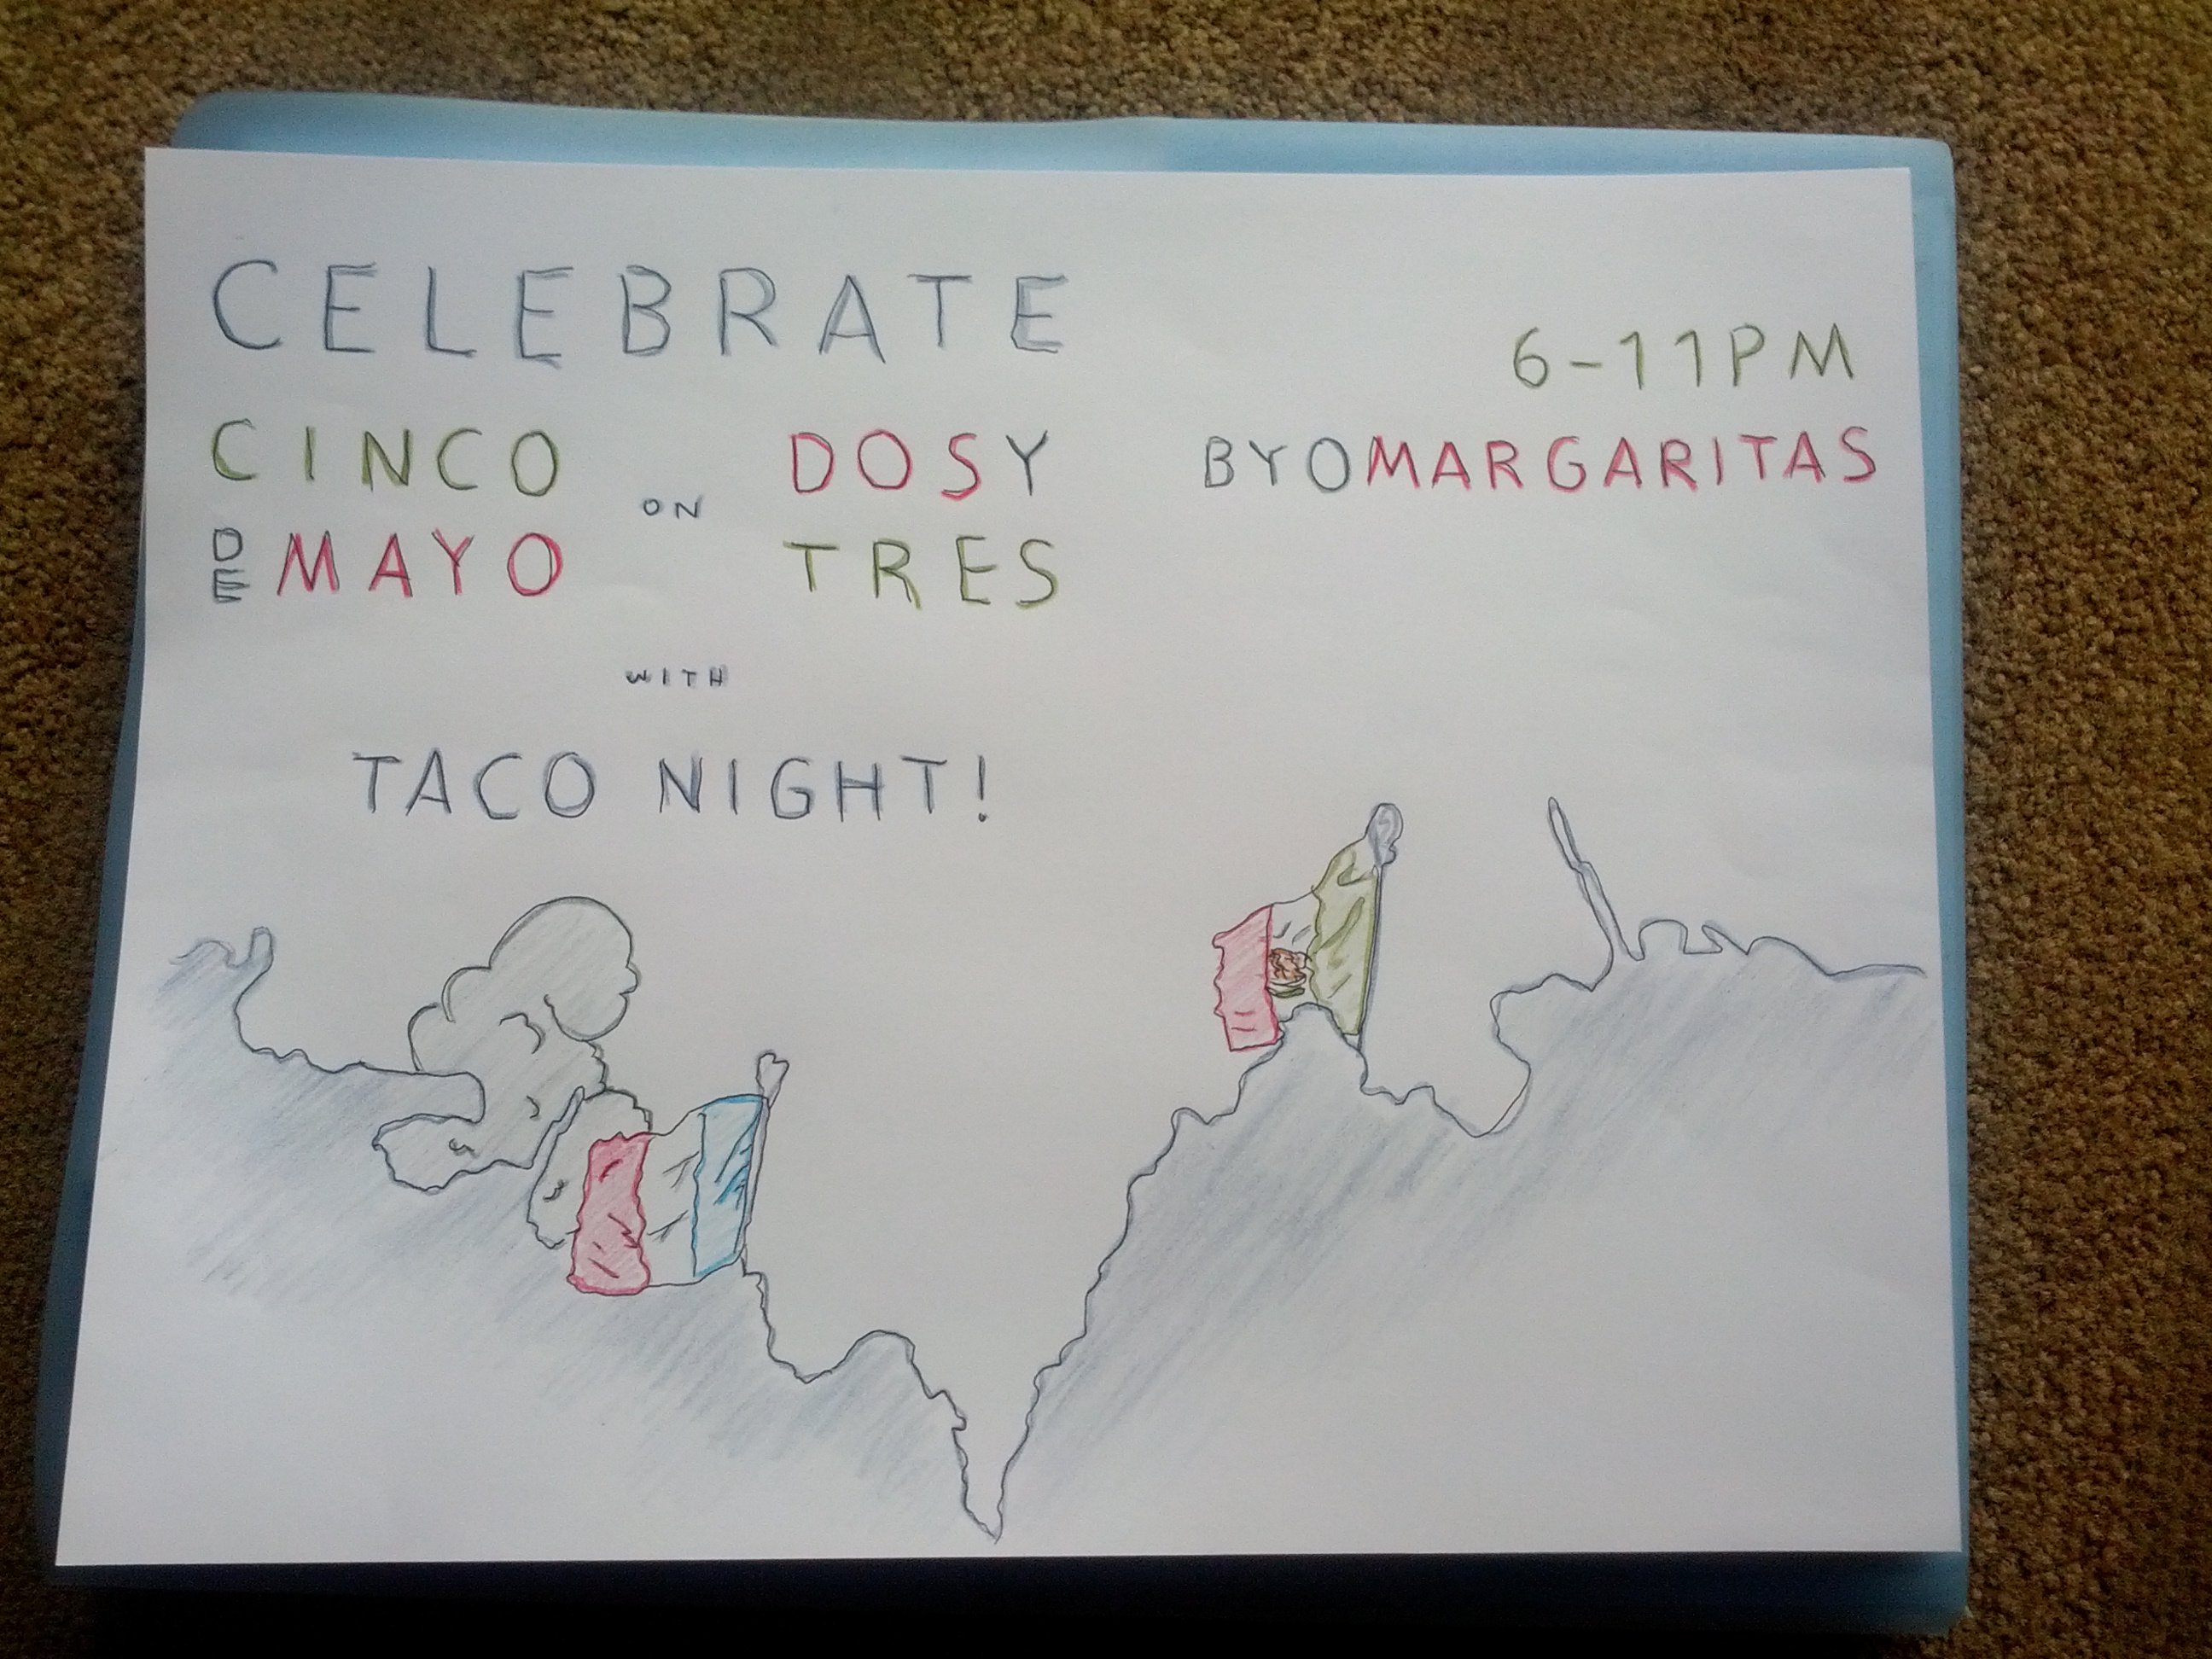 CELEBRATE
CINCO
DE MAYO
ON
DOS Y
TRES
WITH
TACO NIGHT!
6-11PM
BYOMARGARITAS